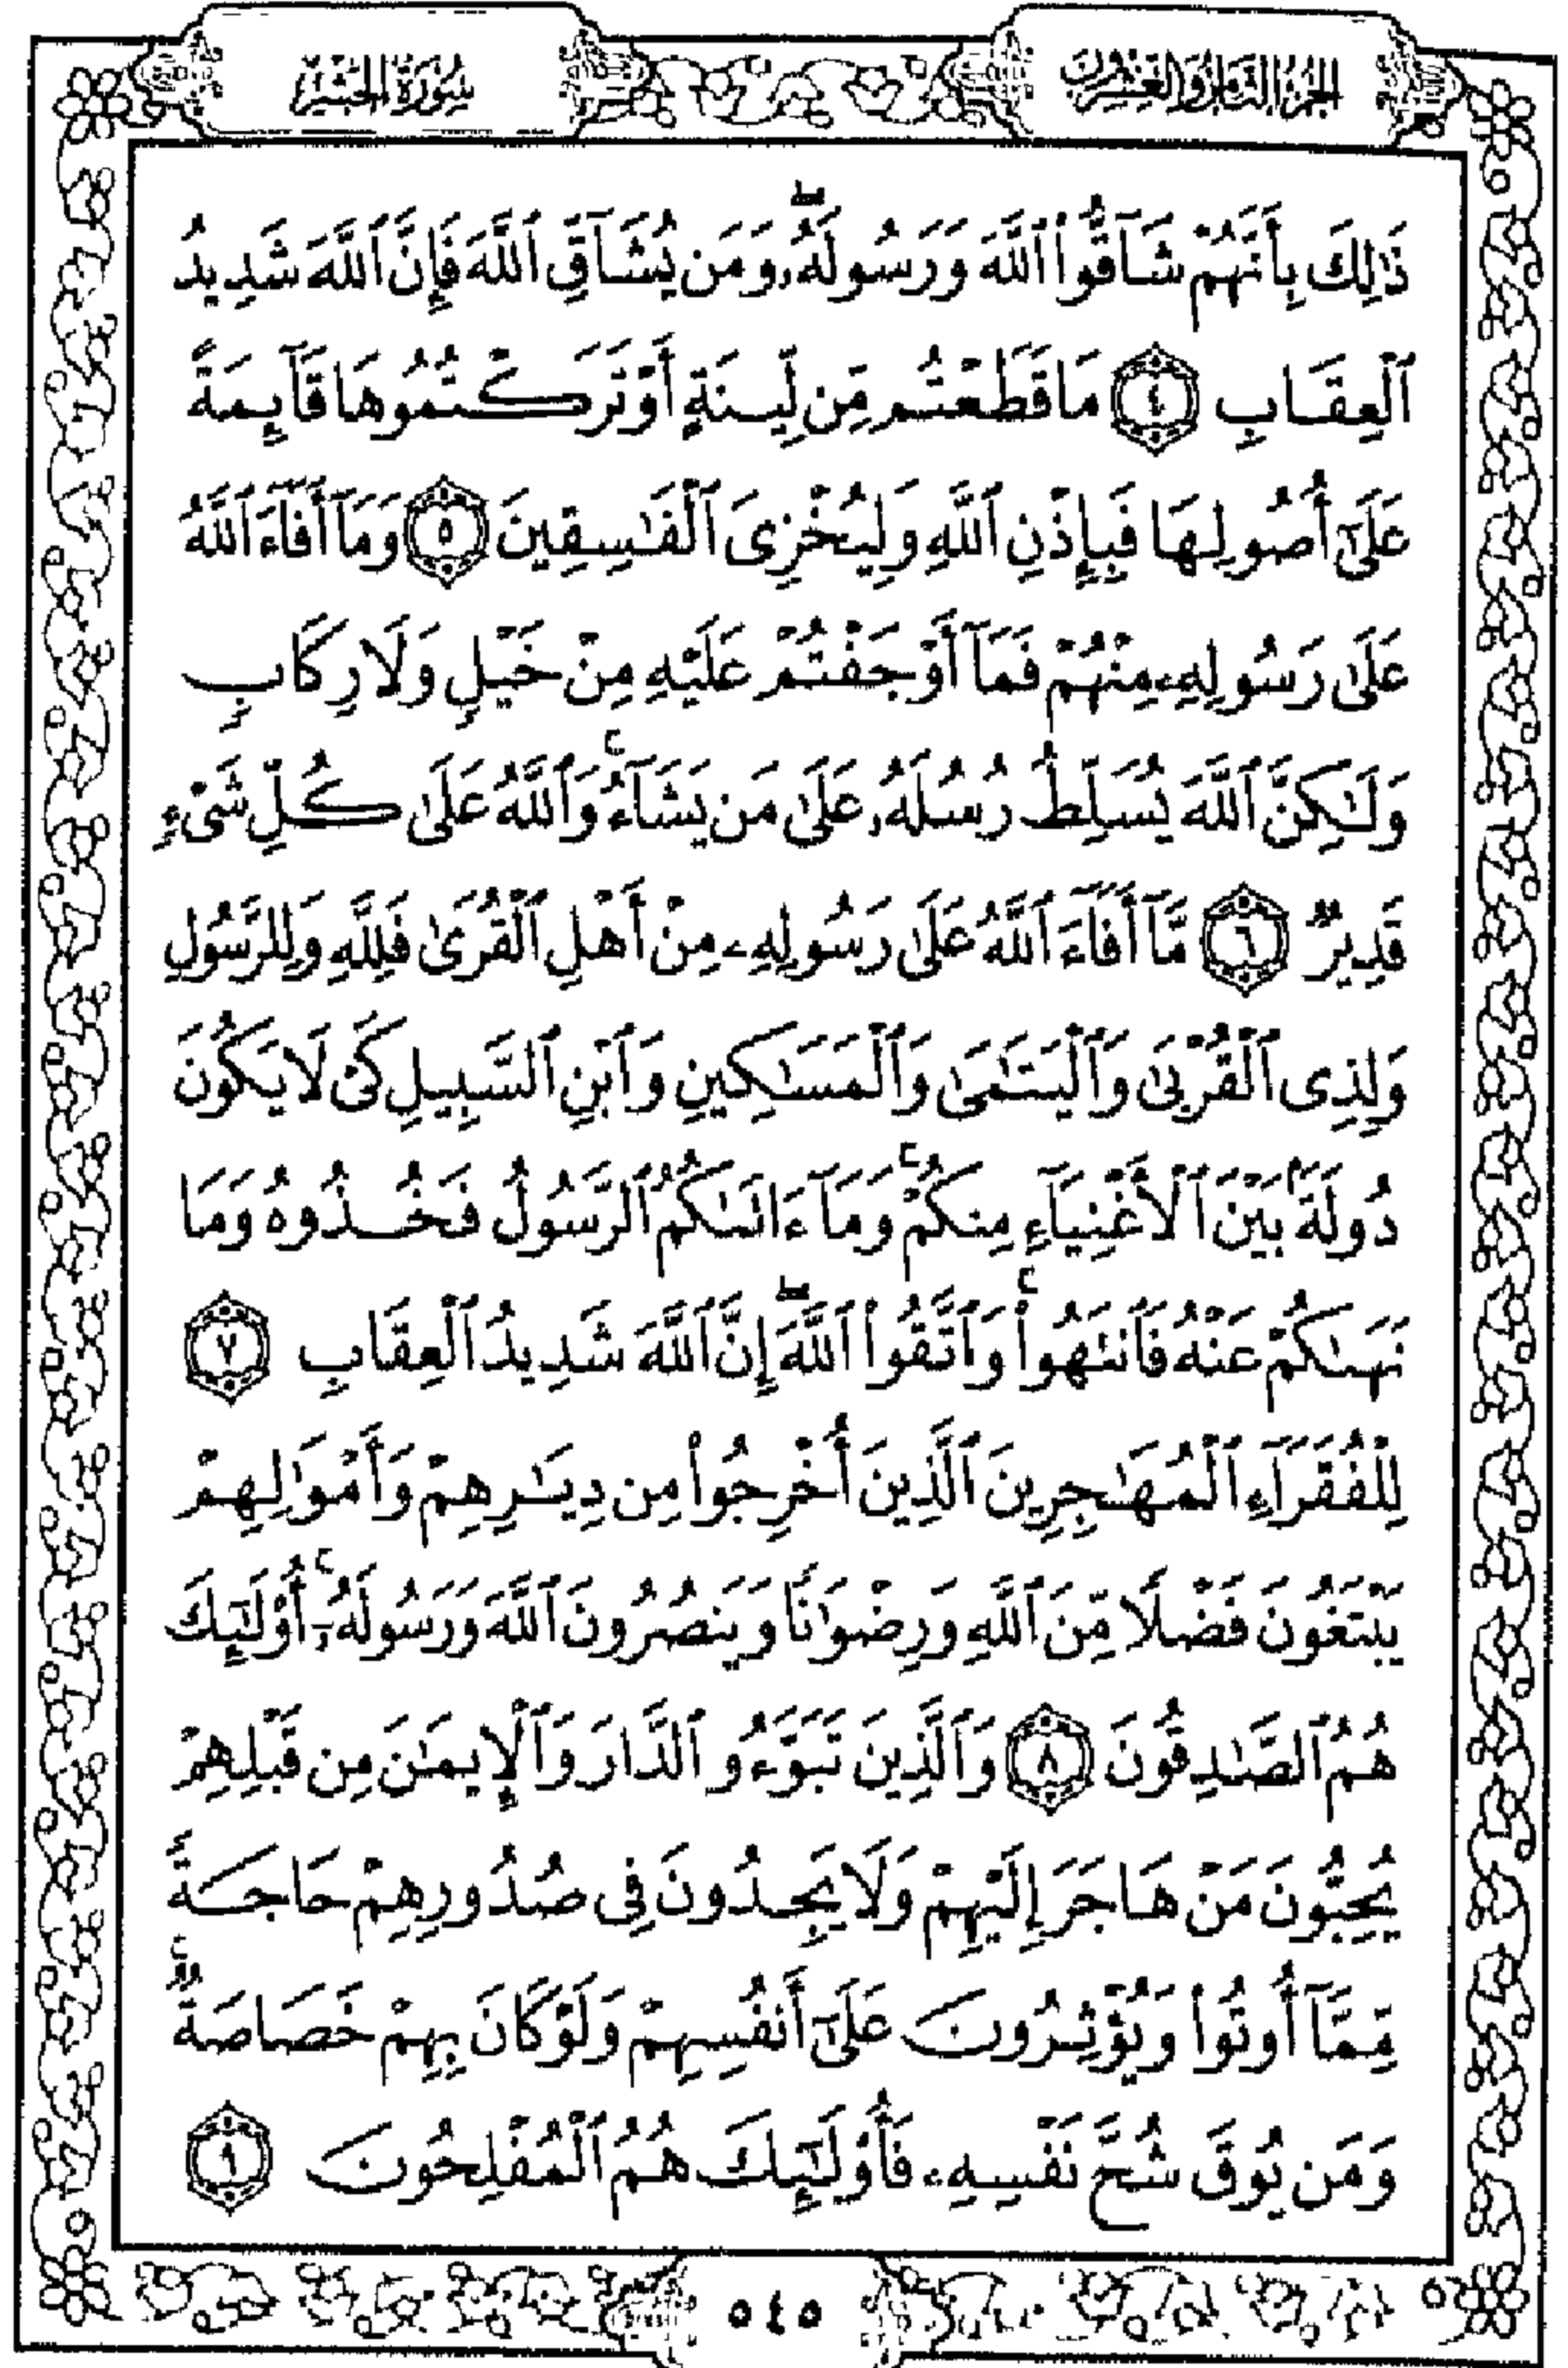 الجزء الثامن والعشرون
سورة الحشر
ذَٰلِكَ بِأَنَّهُمْ شَآقُّوا۟ ٱللَّهَ وَرَسُولَهُۥ ۖ وَمَن يُشَآقِّ ٱللَّهَ فَإِنَّ ٱللَّهَ شَدِيدُ
ٱلْعِقَابِ ٤ مَا قَطَعْتُم مِّن لِّينَةٍ أَوْ تَرَكْتُمُوهَا قَآئِمَةً
عَلَىٰٓ أُصُولِهَا فَبِإِذْنِ ٱللَّهِ وَلِيُخْزِىَ ٱلْفَٰسِقِينَ ٥ وَمَآ أَفَآءَ ٱللَّهُ
عَلَىٰ رَسُولِهِۦ مِنْهُمْ فَمَآ أَوْجَفْتُمْ عَلَيْهِ مِنْ خَيْلٍ وَلَا رِكَابٍ
وَلَٰكِنَّ ٱللَّهَ يُسَلِّطُ رُسُلَهُۥ عَلَىٰ مَن يَشَآءُ ۚ وَٱللَّهُ عَلَىٰ كُلِّ شَىْءٍ
قَدِيرٌ ٦ مَّآ أَفَآءَ ٱللَّهُ عَلَىٰ رَسُولِهِۦ مِنْ أَهْلِ ٱلْقُرَىٰ فَلِلَّهِ وَلِلرَّسُولِ
وَلِذِى ٱلْقُرْبَىٰ وَٱلْيَتَٰمَىٰ وَٱلْمَسَٰكِينِ وَٱبْنِ ٱلسَّبِيلِ كَىْ لَا يَكُونَ
دُولَةًۢ بَيْنَ ٱلْأَغْنِيَآءِ مِنكُمْ ۚ وَمَآ ءَاتَىٰكُمُ ٱلرَّسُولُ فَخُذُوهُ وَمَا
نَهَىٰكُمْ عَنْهُ فَٱنتَهُوا۟ ۚ وَٱتَّقُوا۟ ٱللَّهَ ۖ إِنَّ ٱللَّهَ شَدِيدُ ٱلْعِقَابِ ٧
لِلْفُقَرَآءِ ٱلْمُهَٰجِرِينَ ٱلَّذِينَ أُخْرِجُوا۟ مِن دِيَٰرِهِمْ وَأَمْوَٰلِهِمْ
يَبْتَغُونَ فَضْلًا مِّنَ ٱللَّهِ وَرِضْوَٰنًا وَيَنصُرُونَ ٱللَّهَ وَرَسُولَهُۥٓ ۚ أُو۟لَٰٓئِكَ
هُمُ ٱلصَّٰدِقُونَ ٨ وَٱلَّذِينَ تَبَوَّءُو ٱلدَّارَ وَٱلْإِيمَٰنَ مِن قَبْلِهِمْ
يُحِبُّونَ مَنْ هَاجَرَ إِلَيْهِمْ وَلَا يَجِدُونَ فِى صُدُورِهِمْ حَاجَةً
مِّمَّآ أُوتُوا۟ وَيُؤْثِرُونَ عَلَىٰٓ أَنفُسِهِمْ وَلَوْ كَانَ بِهِمْ خَصَاصَةٌ ۚ
وَمَن يُوقَ شُحَّ نَفْسِهِۦ فَأُو۟لَٰٓئِكَ هُمُ ٱلْمُفْلِحُونَ ٩
٥٤٥